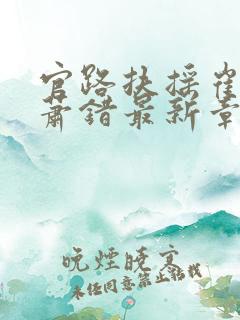 官路扶摇崔
肃错最新章
晚煙晚烹
未经同意禁止转载